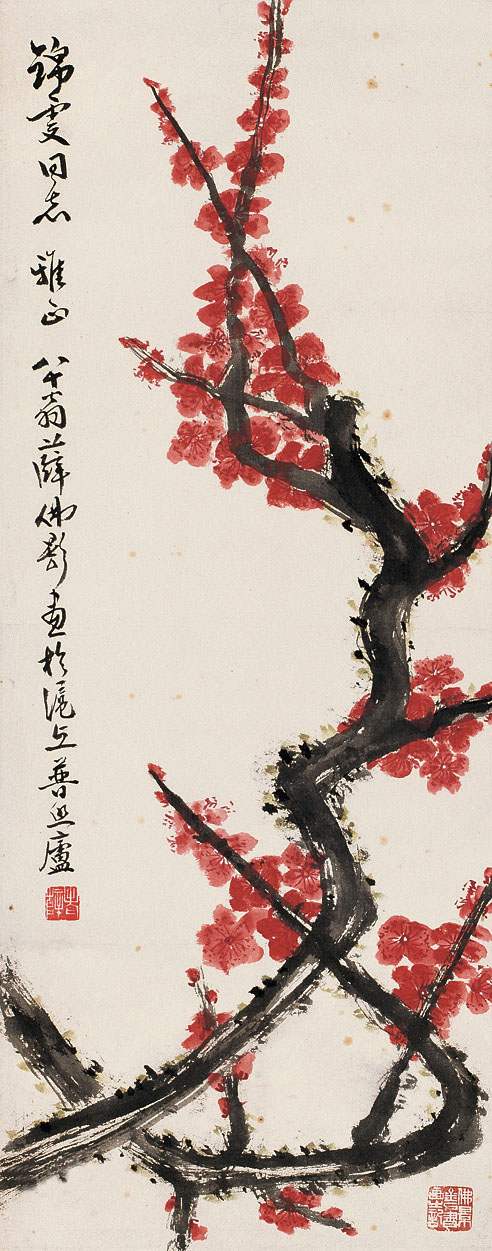 錦雯同志 雅正 八十翁薛佛影画於滬上普照廬